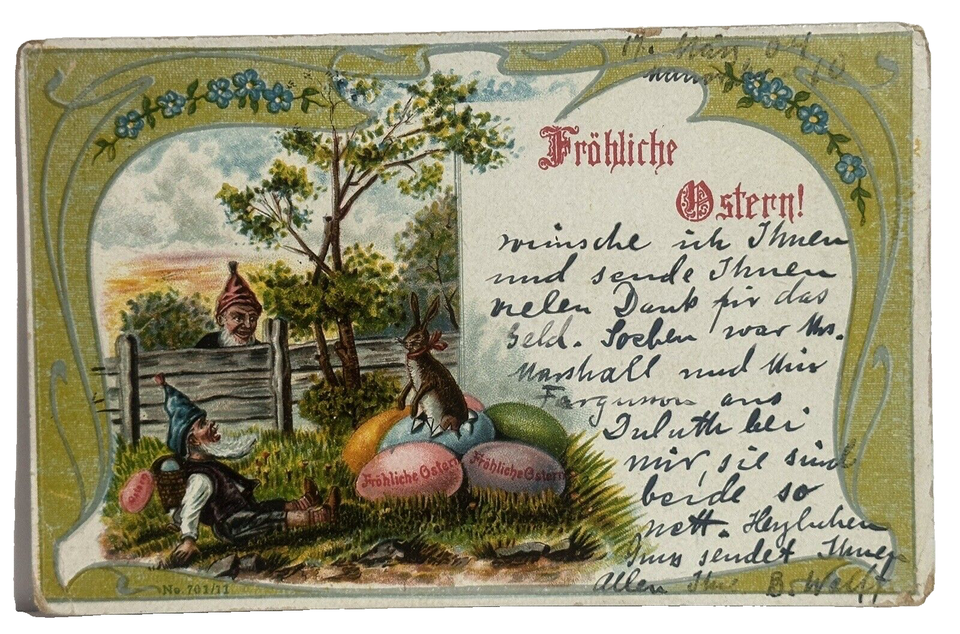 17. März 04
Fröhliche
Ostern!
wünsche ich Ihnen
und sende Ihnen
vielen Dank für das
Geld. Soeben war Mrs.
Marshall und Mrs
Ferguson aus
Duluth bei
mir, sie sind
beide so
nett. Herzlichen
Gruss sendet Ihnen
Allen Ihre B. Wolff
Fröhliche Ostern
Fröhliche Ostern
Ostern
No. 701/11